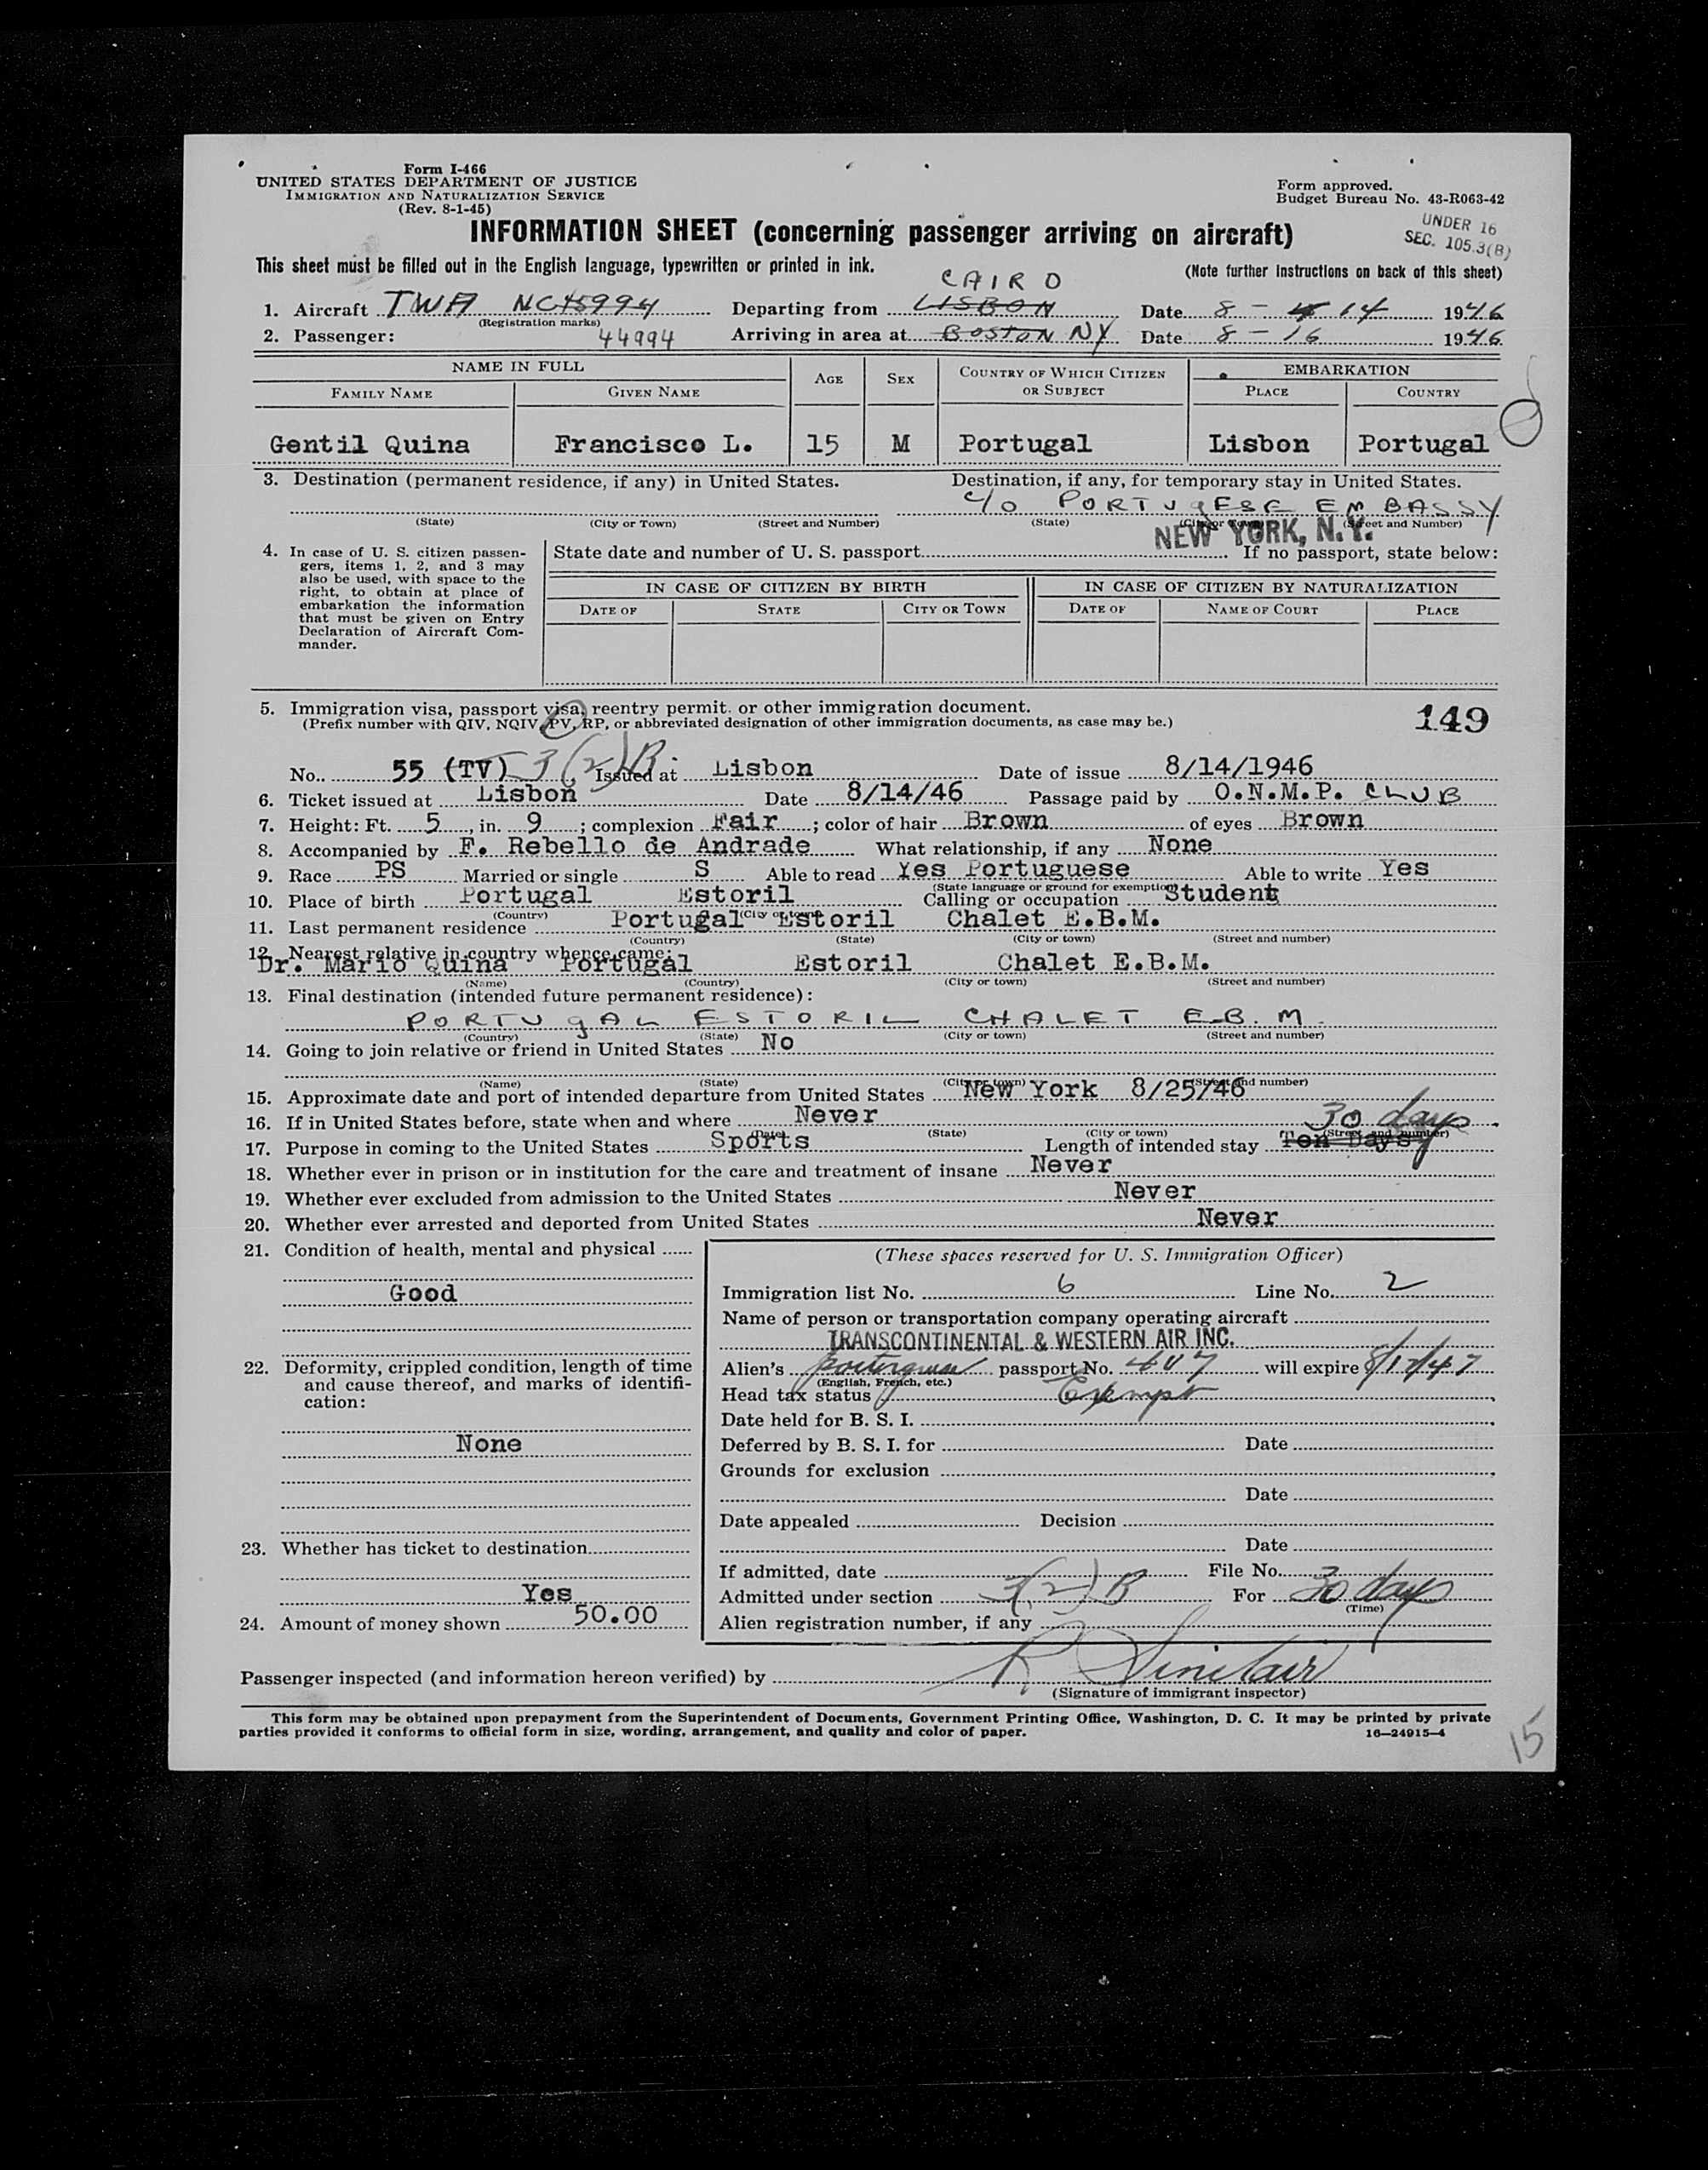 Form I-466
UNITED STATES DEPARTMENT OF JUSTICE
IMMIGRATION AND NATURALIZATION SERVICE
(Rev. 8-1-45)
Form approved.
Budget Bureau No. 43-R063-42
UNDER 16
SEC. 105.3(B)
INFORMATION SHEET (concerning passenger arriving on aircraft)
This sheet must be filled out in the English language, typewritten or printed in ink.
(Note further instructions on back of this sheet)
CAIRO
1. Aircraft TWA NC45994 Departing from LISBON Date 8 - 14 1946
(Registration marks)
2. Passenger: 44994 Arriving in area at BOSTON NY Date 8 - 16 1946
NAME IN FULL AGE SEX COUNTRY OF WHICH CITIZEN OR SUBJECT EMBARKATION
FAMILY NAME GIVEN NAME PLACE COUNTRY
Gentil Quina Francisco L. 15 M Portugal Lisbon Portugal
3. Destination (permanent residence, if any) in United States. Destination, if any, for temporary stay in United States.
C/O PORTUGESE EMBASSY
(State) (City or Town) (Street and Number) (State) (City or Town) (Street and Number)
NEW YORK, N.Y.
4. In case of U. S. citizen passengers, items 1, 2, and 3 may also be used, with space to the right, to obtain at place of embarkation the information that must be given on Entry Declaration of Aircraft Commander.
State date and number of U. S. passport If no passport, state below:
IN CASE OF CITIZEN BY BIRTH IN CASE OF CITIZEN BY NATURALIZATION
DATE OF STATE CITY OR TOWN DATE OF NAME OF COURT PLACE
5. Immigration visa, passport visa, reentry permit. or other immigration document.
(Prefix number with QIV, NQIV, PV, RP, or abbreviated designation of other immigration documents, as case may be.)
149
No. 55 (TV) 3(2)B Issued at Lisbon Date of issue 8/14/1946
6. Ticket issued at Lisbon Date 8/14/46 Passage paid by O.N.M.P. CLUB
7. Height: Ft. 5, in. 9; complexion Fair; color of hair Brown of eyes Brown
8. Accompanied by F. Rebello de Andrade What relationship, if any None
9. Race PS Married or single S Able to read Yes Portuguese Able to write Yes
(State language or ground for exemption)
10. Place of birth Portugal Estoril Calling or occupation Student
(Country) (City or town)
11. Last permanent residence Portugal Estoril Chalet E.B.M.
(Country) (State) (City or town) (Street and number)
12. Nearest relative in country whence came:
Dr. Mario Quina Portugal Estoril Chalet E.B.M.
(Name) (Country) (City or town) (Street and number)
13. Final destination (intended future permanent residence):
PORTUGAL ESTORIL CHALET E.B.M.
(Country) (State) (City or town) (Street and number)
14. Going to join relative or friend in United States No
(Name) (State) (City or town) (Street and number)
15. Approximate date and port of intended departure from United States New York 8/25/46
16. If in United States before, state when and where Never
(Date) (State) (City or town) (Street and number)
30 days
17. Purpose in coming to the United States Sports Length of intended stay Ten Days
18. Whether ever in prison or in institution for the care and treatment of insane Never
19. Whether ever excluded from admission to the United States Never
20. Whether ever arrested and deported from United States Never
21. Condition of health, mental and physical
Good
22. Deformity, crippled condition, length of time and cause thereof, and marks of identification:
None
23. Whether has ticket to destination
Yes
24. Amount of money shown 50.00
(These spaces reserved for U. S. Immigration Officer)
Immigration list No. 6 Line No. 2
Name of person or transportation company operating aircraft
TRANSCONTINENTAL & WESTERN AIR INC.
Alien's Portuguese passport No. 407 will expire 8/12/47
(English, French, etc.)
Head tax status Exempt
Date held for B. S. I.
Deferred by B. S. I. for Date
Grounds for exclusion
Date
Date appealed Decision
Date
If admitted, date File No.
Admitted under section 3(2)B For 30 days
(Time)
Alien registration number, if any
Passenger inspected (and information hereon verified) by R Sinclair
(Signature of immigrant inspector)
This form may be obtained upon prepayment from the Superintendent of Documents, Government Printing Office, Washington, D. C. It may be printed by private
parties provided it conforms to official form in size, wording, arrangement, and quality and color of paper. 16—24915-4
15